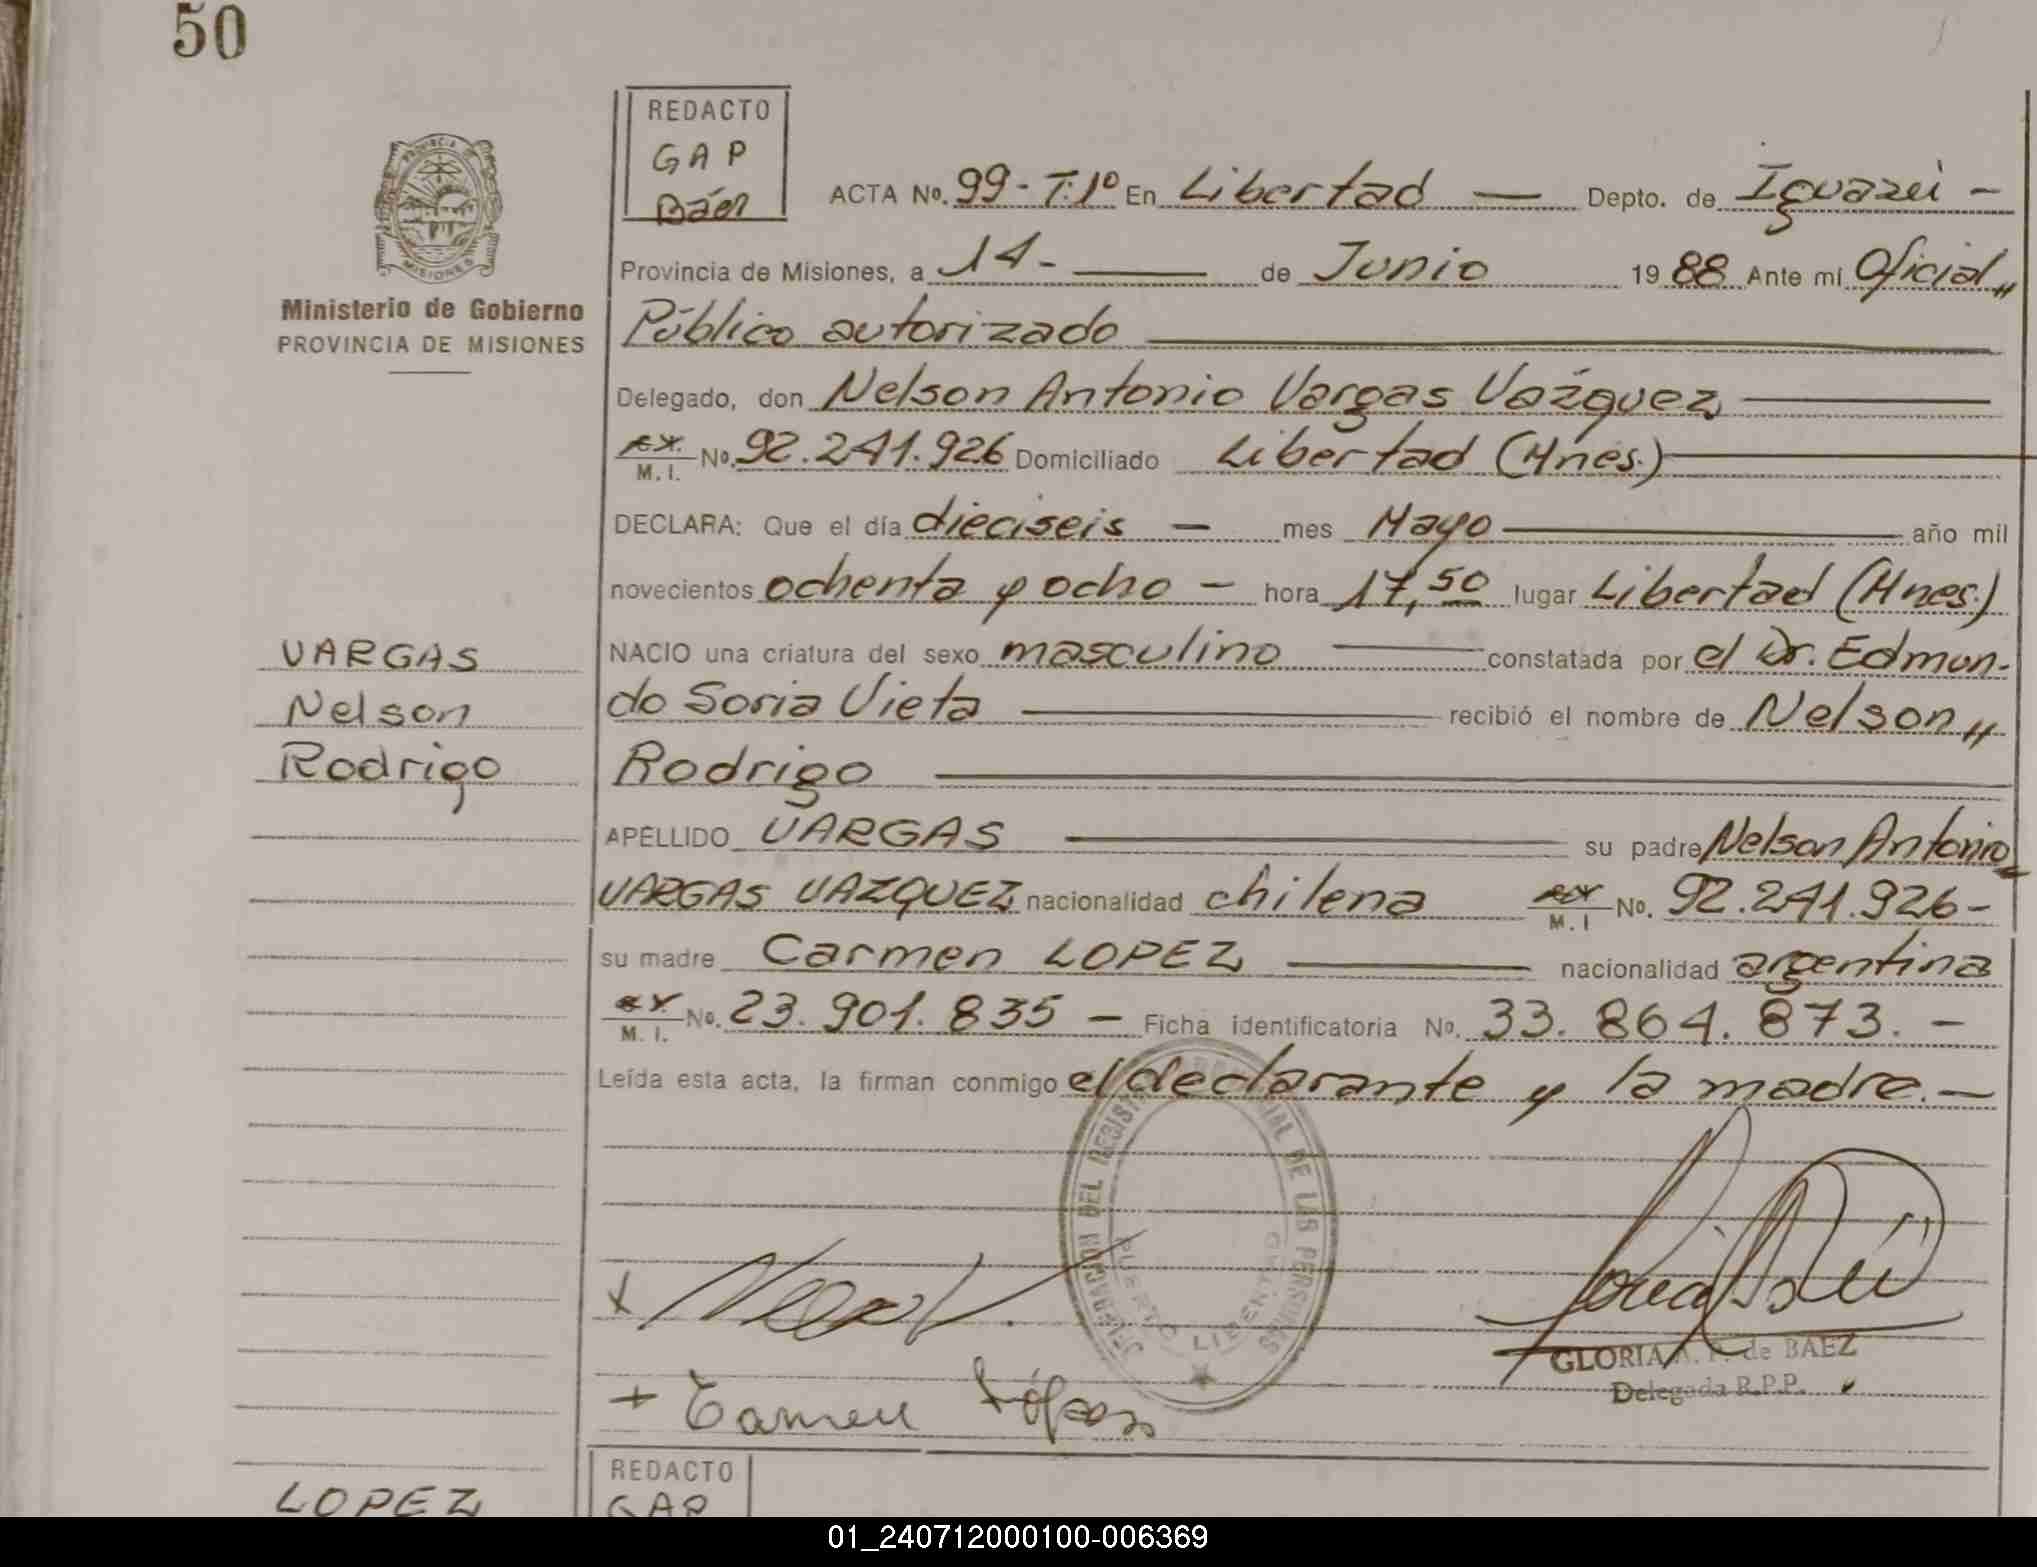 50
REDACTO
GAP
Báez
PROVINCIA DE
MISIONES
Ministerio de Gobierno
PROVINCIA DE MISIONES
ACTA No. 99-T.1º En Libertad — Depto. de Iguazú -
Provincia de Misiones, a 14- — de Junio 1988 Ante mí Oficial,,
Público autorizado —
Delegado, don Nelson Antonio Vargas Vázquez —
M. I. No. 92.241.926 Domiciliado Libertad (Mnes.) —
DECLARA: Que el día dieciseis — mes Mayo — año mil
novecientos ochenta y ocho — hora 17,50 lugar Libertad (Mnes.)
VARGAS
Nelson
Rodrigo
NACIO una criatura del sexo masculino — constatada por el Dr. Edmun-
do Soria Vieta — recibió el nombre de Nelson,,
Rodrigo —
APELLIDO VARGAS — su padre Nelson Antonio
VARGAS VAZQUEZ nacionalidad chilena M. I No. 92.241.926-
su madre Carmen LOPEZ — nacionalidad argentina
M. I. No. 23.901.835 — Ficha identificatoria No. 33.864.873. —
Leída esta acta, la firman conmigo el declarante y la madre. —
DEL REGISTRO PROVINCIAL DE LAS PERSONAS
PUERTO LIBERTAD
+ Carmen López
GLORIA A. P. de BAEZ
Delegada R.P.P.
LOPEZ
REDACTO
GAP
01_240712000100-006369